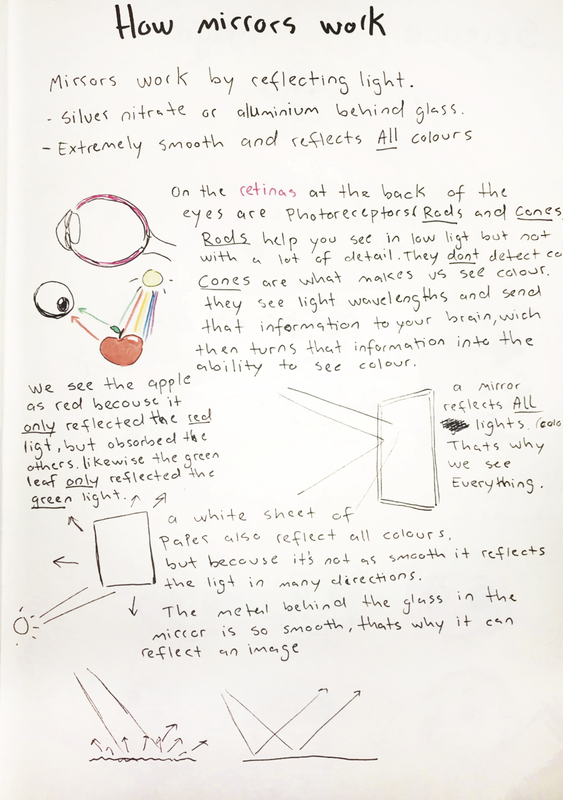 How mirrors work
Mirrors work by reflecting light.
- Silver nitrate or aluminium behind glass.
- Extremely smooth and reflects All colours
On the retinas at the back of the
eyes are Photoreceptors( Rods and Cones
Rods help you see in low ligt but not
with a lot of detail. They dont detect co
Cones are what makes us see colour.
they see light wavelengths and send
that information to your brain, wich
then turns that information into the
ability to see colour.
we see the apple
as red becouse it
only reflected the red
ligt, but obsorbed the
others. likewise the green
leaf only reflected the
green light.
a mirror
reflects All
lights. (colo
Thats why
we see
Everything.
a white sheet of
paper also reflect all colours,
but becouse it's not as smooth it reflects
the ligt in many directions.
The metal behind the glass in the
mirror is so smooth, thats why it can
reflect an image